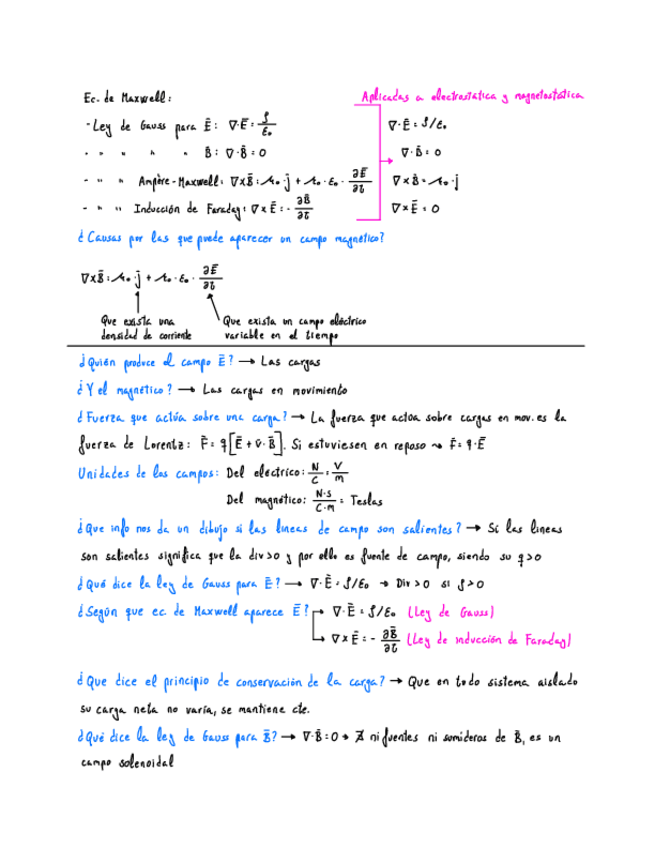 Ec. de Maxwell:
Aplicadas a electrostática y magnetostática
- Ley de Gauss para Ē: ∇·Ē = ρ/ε₀
∇·Ē = ρ/ε₀
- " " " " B̄: ∇·B̄ = 0
∇·B̄ = 0
- " " Ampère-Maxwell: ∇×B̄ = μ₀·j̄ + μ₀·ε₀·∂Ē/∂t
∇×B̄ = μ₀·j̄
- " " Inducción de Faraday: ∇×Ē = -∂B̄/∂t
∇×Ē = 0
¿Causas por las que puede aparecer un campo magnético?
∇×B̄ = μ₀·j̄ + μ₀·ε₀·∂Ē/∂t
Que exista una densidad de corriente
Que exista un campo eléctrico variable en el tiempo
¿Quién produce el campo Ē? → Las cargas
¿Y el magnético? → Las cargas en movimiento
¿Fuerza que actúa sobre una carga? → La fuerza que actua sobre cargas en mov. es la
fuerza de Lorentz: F̄ = q[Ē + v̄·B̄]. Si estuviesen en reposo ⇝ F̄ = q·Ē
Unidades de los campos: Del eléctrico: N/C = V/m
Del magnético: N·s/C·m = Teslas
¿Que info nos da un dibujo si las lineas de campo son salientes? → Si las lineas
son salientes significa que la div>0 y por ello es fuente de campo, siendo su q>0
¿Qué dice la ley de Gauss para Ē? → ∇·Ē = ρ/ε₀ → Div>0 si ρ>0
¿Según que ec. de Maxwell aparece Ē? → ∇·Ē = ρ/ε₀ (Ley de Gauss)
→ ∇×Ē = -∂B̄/∂t (Ley de inducción de Faraday)
¿Que dice el principio de conservación de la carga? → Que en todo sistema aislado
su carga neta no varía, se mantiene cte.
¿Qué dice la ley de Gauss para B̄? → ∇·B̄ = 0 → ∄ ni fuentes ni sumideros de B̄, es un
campo solenoidal